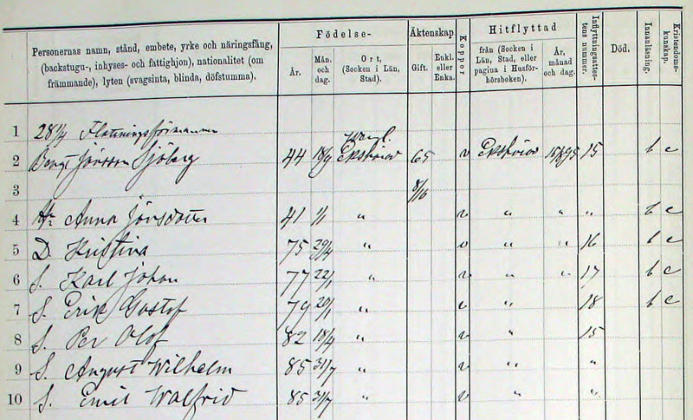 Personernas namn, stånd, embete, yrke och näringsfång, (backstugu-, inhyses- och fattighjon), nationalitet (om främmande), lyten (svagsinta, blinda, döfstumma).
Födelse-
År.
Mån. och dag.
Ort, (Socken i Län, Stad).
Äktenskap
Gift.
Enkl. eller Enka.
Koppor
Hitflyttad
från (Socken i Län, Stad, eller pagina i Husförhörsboken).
År, månad och dag.
Inflyttningsattestens nummer.
Död.
Innanläsning.
Kristendomskunskap.
1
2 Bengt Jönsson Sjöberg 44 18/9 65 v 15
3 8/10
4 Anna Jönsdotter 41 1/1 " v " " " b c
5 D. Kristina 75 29/4 " v " " 16 b c
6 S. Karl Johan 77 22/1 " v " " 17 b c
7 S. Erik Gustof 79 20/1 " v " 18 b c
8 S. Per Olof 82 18/4 " v " 15
9 S. August Wilhelm 85 31/7 " v " "
10 S. Emil Walfrid 85 31/7 " v " "